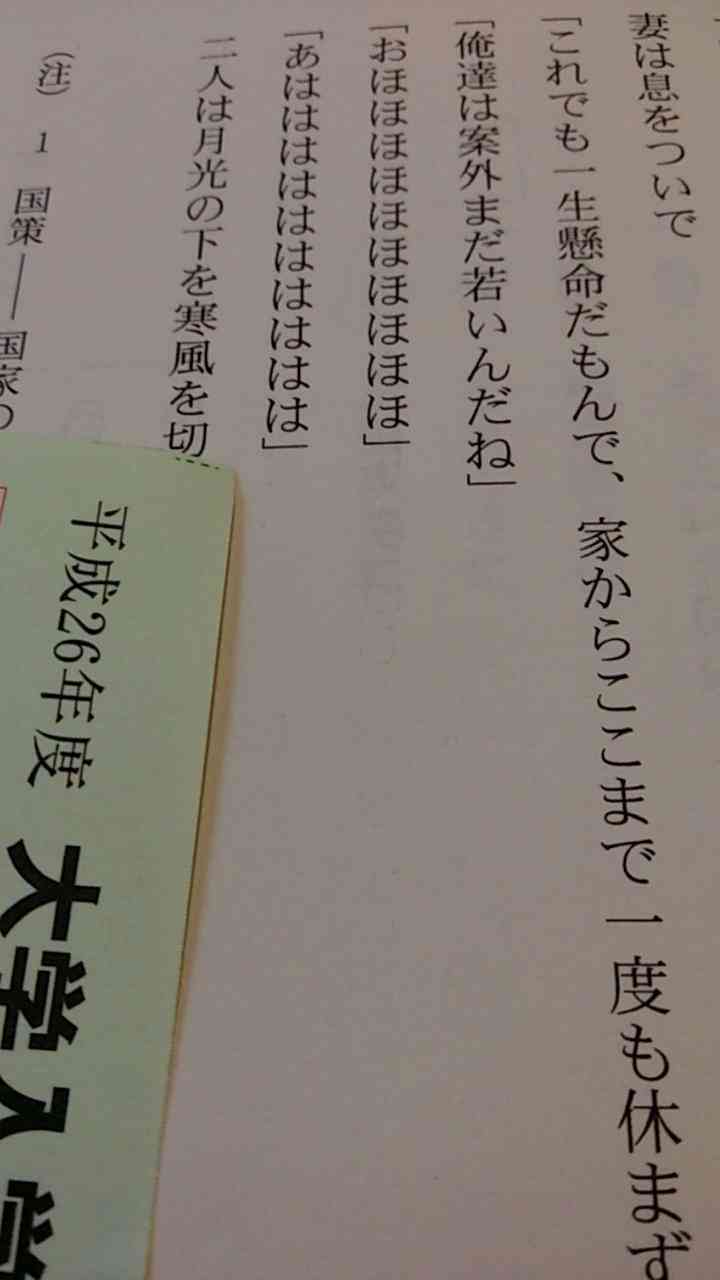 妻は息をついで
「これでも一生懸命だもんで、家からここまで一度も休まず
「俺達は案外まだ若いんだね」
「おほほほほほほほほほほ」
「あはははははははははは」
二人は月光の下を寒風を切
(注) 1 国策――国家の
平成26年度 大学入学